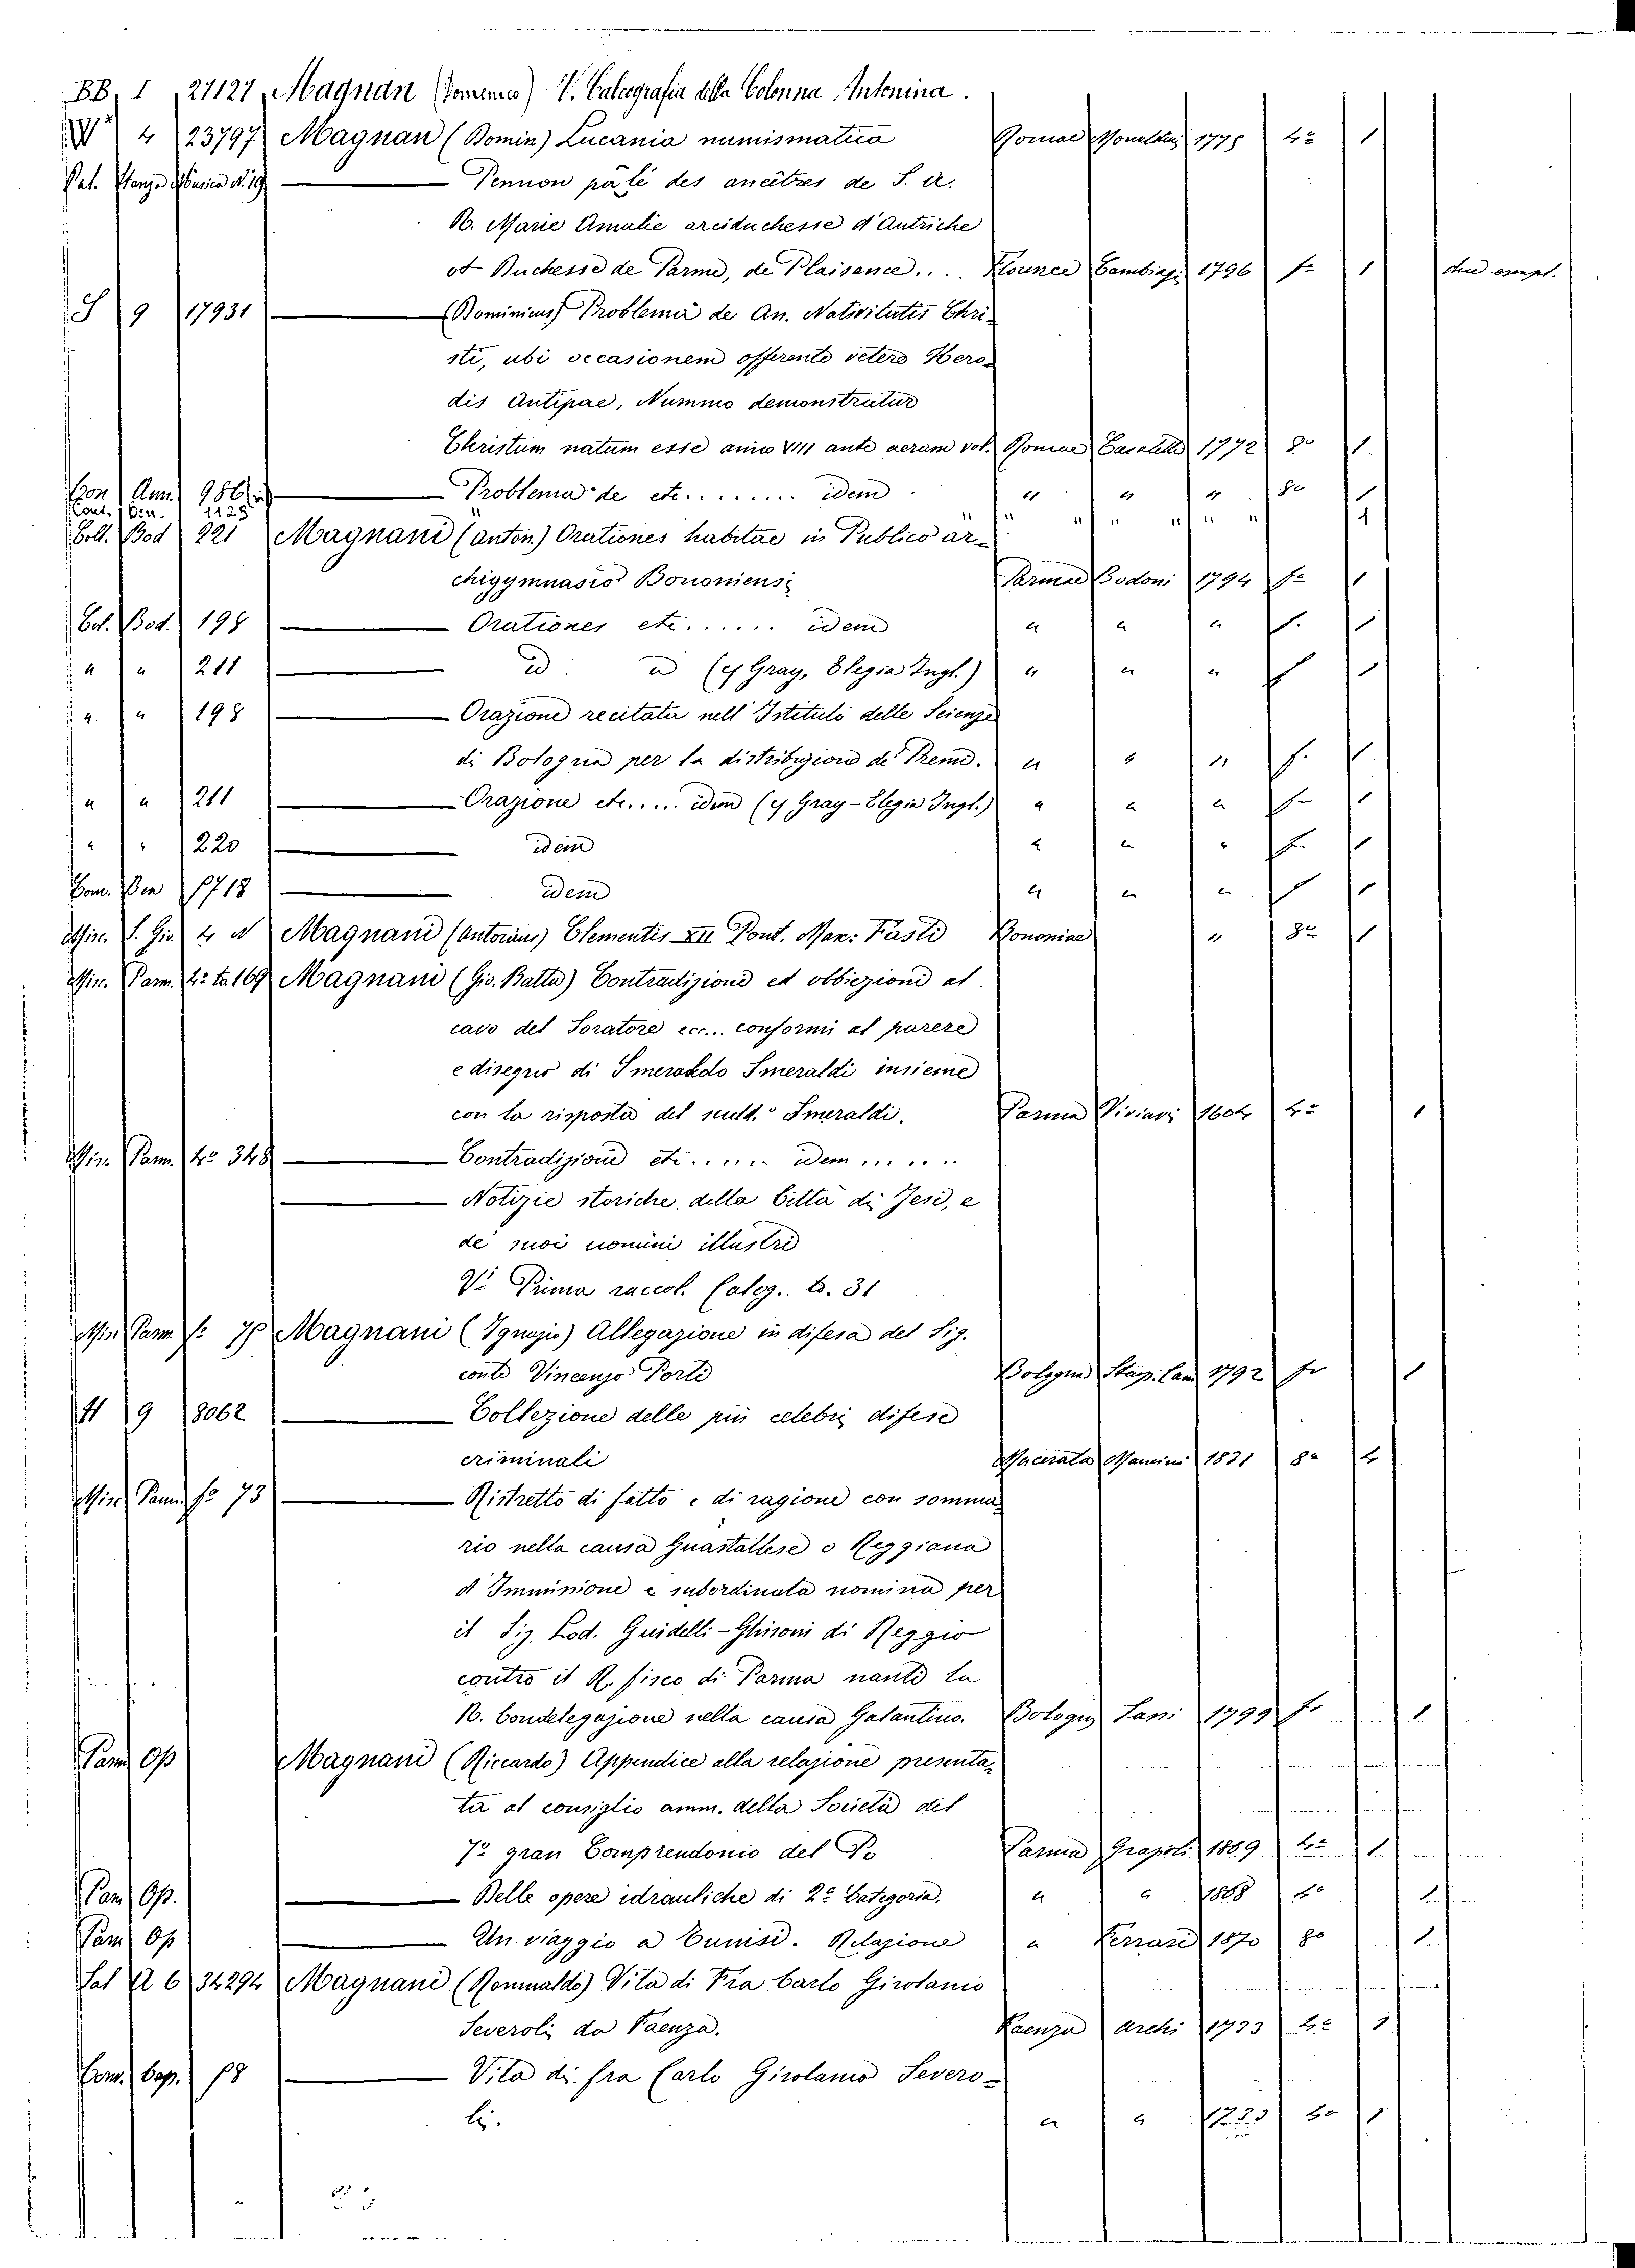 BB. I 27127 Magnan (Domenico) V. Calcografia della Colonna Antonina.
W* 4 23797 Magnan (Domin) Lucania numismatica Romae Monaldini 1775 4° 1
Pal. Stanza Musica N. 19 — Pennon palé des ancêtres de S. A.
R. Marie Amalie arciduchesse d'Autriche
et Duchesse de Parme, de Plaisance.... Flounce Cambiagi 1796 f° 1 due esempl.
S 9 17931 — (Dominicus) Problema de An. Nativitatis Chri-
sti, ubi occasionem offerente vetere Hero-
dis Antipae, Nummo demonstratur
Christum natum esse anno VIII ante aeram vol. Romae Casaletti 1772 8° 1
Con Ann. 986 — Problema de etc......... idem " " " 8° 1
Cont. Ben. 1125 " " " " " " 1
Coll. Bod 221 Magnani (Anton.) Orationes habitae in Publico ar-
chigymnasio Bononiensi Parmae Bodoni 1794 f° 1
Col. Bod. 198 — Orationes etc...... idem " " " f. 1
" " 211 — id. id (e Gray, Elegia Ingl.) " " " f 1
" " 198 — Orazione recitata nell' Istituto delle Scienze
di Bologna per la distribuzione de' Premi. " " " f. 1
" " 211 — Orazione etc..... idem (e Gray - Elegia Ingl.) " " " f- 1
" " 220 — idem " " " f. 1
Com. Ben 1718 — idem " " " f 1
Misc. S. Giu 4 N Magnani (Antonius) Clementis XII Pont. Max: Fasti Bononiae " 8° 1
Misc. Parm. 4° to 169 Magnani (Gio. Batta) Contradizione ed obbiezioni al
cavo del Toratore ecc... conformi al parere
e disegno di Smeraldo Smeraldi insieme
con la risposta del sudd.° Smeraldi. Parma Viviani 1604 4° 1
Misc. Parm. 4° 348 — Contradizione etc...... idem ......
— Notizie storiche della città di Jesi, e
de' suoi uomini illustri
V. Prima raccol. Calog. to. 31
Misc Parm f° 70 Magnani (Ignazio) Allegazione in difesa del Sig.
conte Vincenzo Porti Bologna Stamp. Cam 1792 f° 1
H 9 8062 — Collezione delle più celebri difese
criminali Macerata Mancini 1831 8° 4
Misc Parm f° 73 — Ristretto di fatto e di ragione con somma-
rio nella causa Guastallese o Reggiana
d'Immisione e subordinata nomina per
il Sig. Lod. Guidelli-Ghisoni di Reggio
contro il R. fisco di Parma nanti la
R. Condelegazione nella causa Galantino. Bologna Lani 1799 f° 1
Parm Op Magnani (Riccardo) Appendice alla relazione presenta-
ta al consiglio amm. della Società del
7° gran Comprendonio del Po Parma Grazioli 1889 4° 1
Parm Op. — Delle opere idrauliche di 2ª Categoria. " " 1888 8° 1
Parm Op — Un viaggio a Tunisi. Relazione " Ferrari 1870 8° 1
Sal A 6 34294 Magnani (Romualdo) Vita di Fra Carlo Girolamo
Severoli da Faenza. Faenza Archi 1733 4° 1
Conv. Cap. 18 — Vita di fra Carlo Girolamo Severo-
li. " " 1733 4° 1